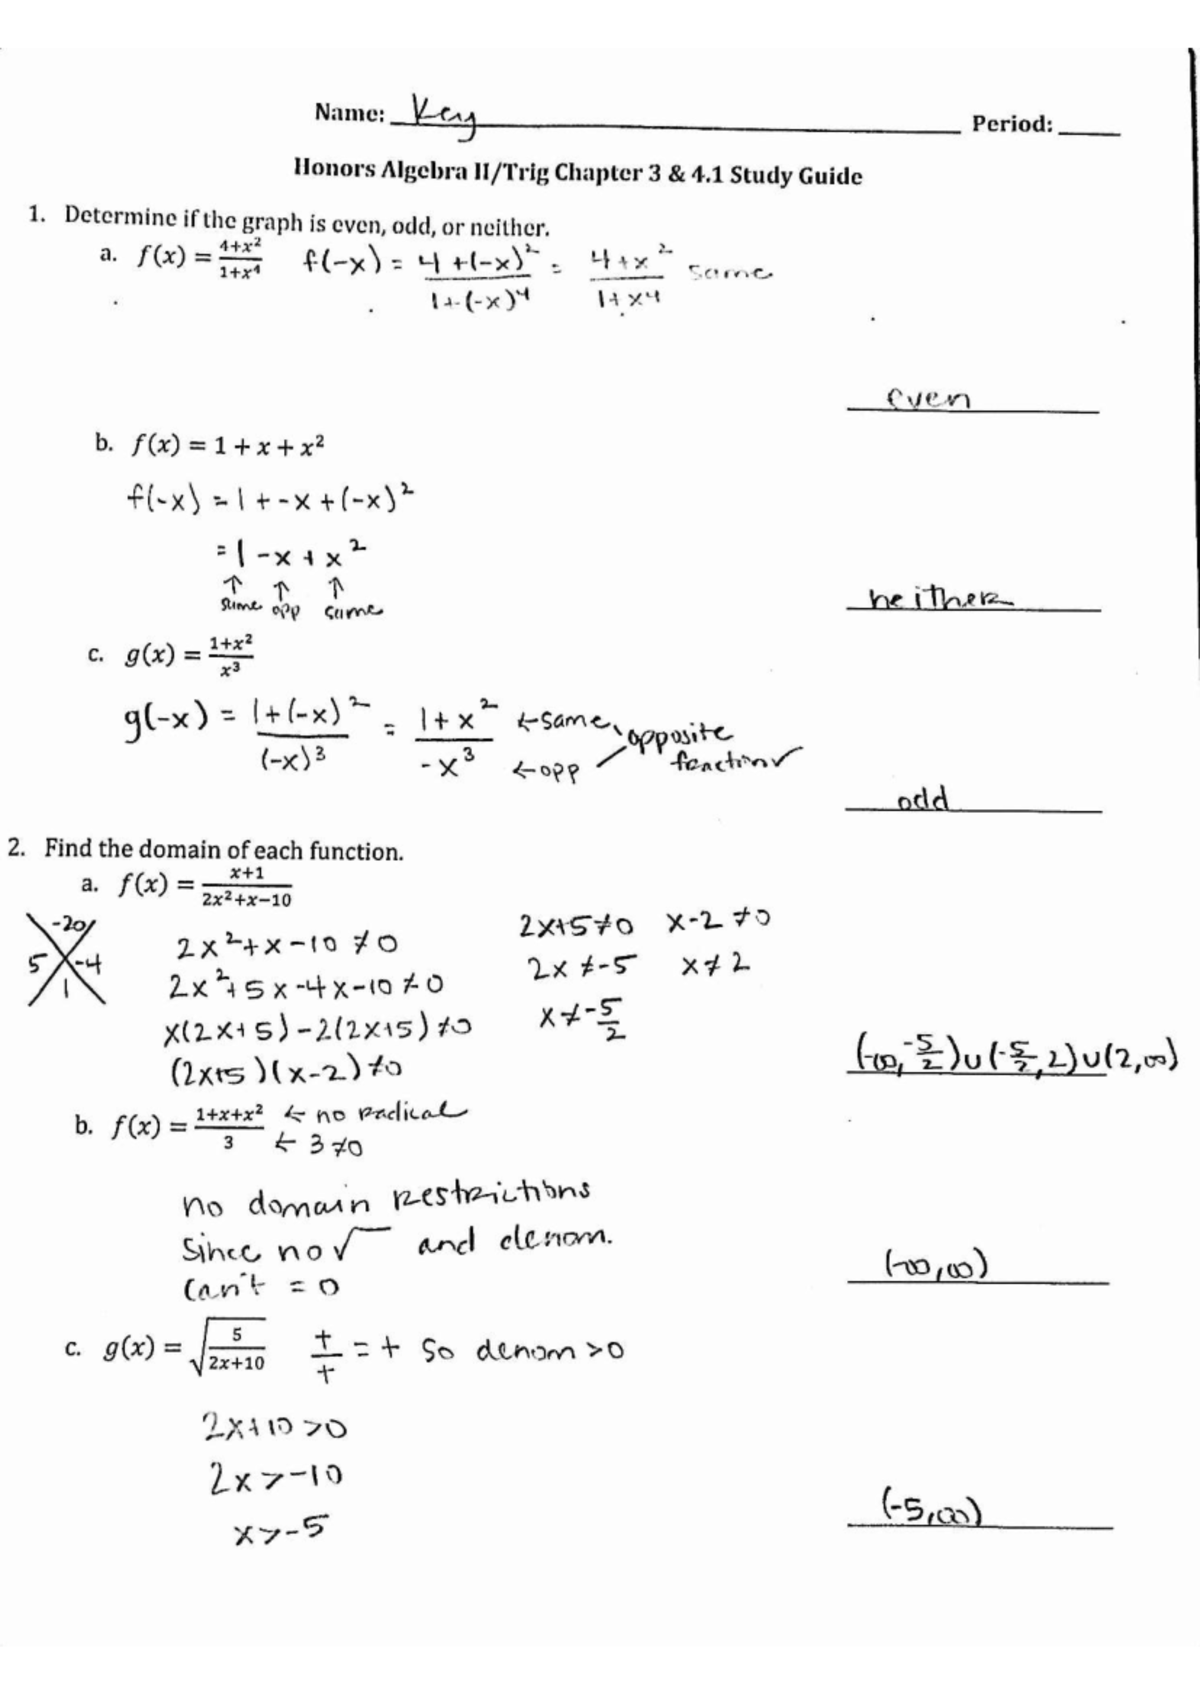 Name: Key Period:
Honors Algebra II/Trig Chapter 3 & 4.1 Study Guide
1. Determine if the graph is even, odd, or neither.
a. f(x) = (4+x²)/(1+x⁴) f(-x) = (4+(-x)²)/(1+(-x)⁴) = (4+x²)/(1+x4) same
even
b. f(x) = 1 + x + x²
f(-x) = 1 + -x + (-x)²
= 1 - x + x²
↑ ↑ ↑
same opp same
neither
c. g(x) = (1+x²)/x³
g(-x) = (1+(-x)²)/(-x)³ = (1+x²)/(-x³) ←same opposite
←opp function
odd
2. Find the domain of each function.
a. f(x) = (x+1)/(2x²+x-10)
-20
5 -4
1
2x²+x-10 ≠0 2x+5≠0 x-2≠0
2x²+5x-4x-10≠0 2x≠-5 x≠2
x(2x+5)-2(2x+5)≠0 x≠-5/2
(2x+5)(x-2)≠0
(-∞,-5/2)∪(-5/2,2)∪(2,∞)
b. f(x) = (1+x+x²)/3 ← no radical
← 3≠0
no domain restrictions
since no √ and denom.
can't = 0
(-∞,∞)
c. g(x) = √(5/(2x+10)) +/+ = + so denom >0
2x+10>0
2x>-10
x>-5
(-5,∞)